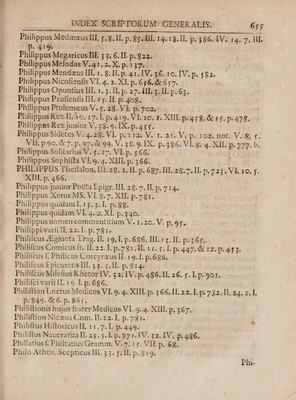 INDEX SCRIPTORUM GENERALIS. 655
Philippus Medmæus III. 5. 8. II. p. 85. III. 14. 18. II. p. 386. IV. 14. 7. III.
p. 419.
Philippus Megaricus III. 33. 6. II. p. 822.
Philippus Melodus V. 41. 2. X. p. 137.
Philippus Mendæus III. 1. 8. II. p. 41. IV. 36. 10. IV. p. 582.
Philippus Nicosiensis VI. 4. 2. XI. p. 656. & 657.
Philippus Opuntius III. 1. 3. II. p. 27. III. 3. II. p. 63.
Philippus Prusiensis III. 15. II. p. 408.
Philippus Ptolemæus V. 5. 28. VI. p. 702.
Philippus Rex II. 60. 17. I. p. 419. VI. 10. 1. XIII. p. 458. & 15. p. 478.
Philippus Rex junior V. 38. 9. IX. p. 431.
Philippus Sidetes V. 4. 28. VI. p. 112. V. 1. 21. V. p. 102. not. V. 8. 5.
VII. p. 90. & 7. p. 97. & 99. V. 18. 9. IX. p. 386. VI. 8. 4. XII. p. 777. b.
Philippus Solitarius V. 5. 17. VI. p. 566.
Philippus Sophista VI. 9. 4. XIII. p. 366.
PHILIPPUS Thessalon. III. 28. 2. II. p. 687. III. 28. 7. II. p. 723. VI. 10. 5.
XIII. p. 466.
Philippus junior Poëta Epigr. III. 28. 7. II. p. 714.
Philippus Xerus MS. VI. 8. 7. XII. p. 781.
Philippus quidam I. 13. 3. I. p. 88.
Philippus quidam VI. 4. 2. XI. p. 340.
Philippus nomen commentitium V. 1. 20. V. p. 95.
Philippi varii II. 22. I. p. 781.
Philiscus Æginota Trag. II. 19. I. p. 686. III. 15. II. p. 365.
Philiscus Comicus fr. II. 22. I. p. 781. II. 11. 5. I. p. 447. & 12. p. 453.
Philiscus f. Philicus Corcyræus II. 19. I. p. 686.
Philiscus Epicureus III. 33. 3. II. p. 814.
Philiscus Milesius Rhetor IV. 32. IV. p. 486. II. 26. 5. I. p. 901.
Philisci varii II. 19. I. p. 686.
Philistion Locrus Medicus VI. 9. 4. XIII. p. 366. II. 22. I. p. 782. II. 24. 2. I.
p. 849. & 6. p. 865.
Philistionis hujus frater Medicus VI. 9. 4. XIII. p. 367.
Philistion Nicæus Com. II. 22. I. p. 781.
Philistus Historicus II. 11. 7. I. p. 449.
Philistus Naucratita II. 25. 5. I. p. 871. IV. 32. IV. p. 486.
Phillatius f. Philtatius Gramm. V. 7. 15. VII. p. 68.
Philo Athen. Scepticus III. 33. 5. II. p. 819.
Phi-